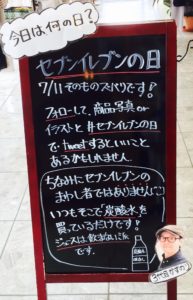 今日は何の日?
セブンイレブンの日
7/11 そのものズバリです!
フォローして、商品写真or
イラストと #セブンイレブンの日
で tweetするといいこと
あるかもしれません。
ちなみにセブンイレブンの
まわし者ではありません
いつもそこで「炭酸水を
買っているだけです!
ジュースは飲まない派
です